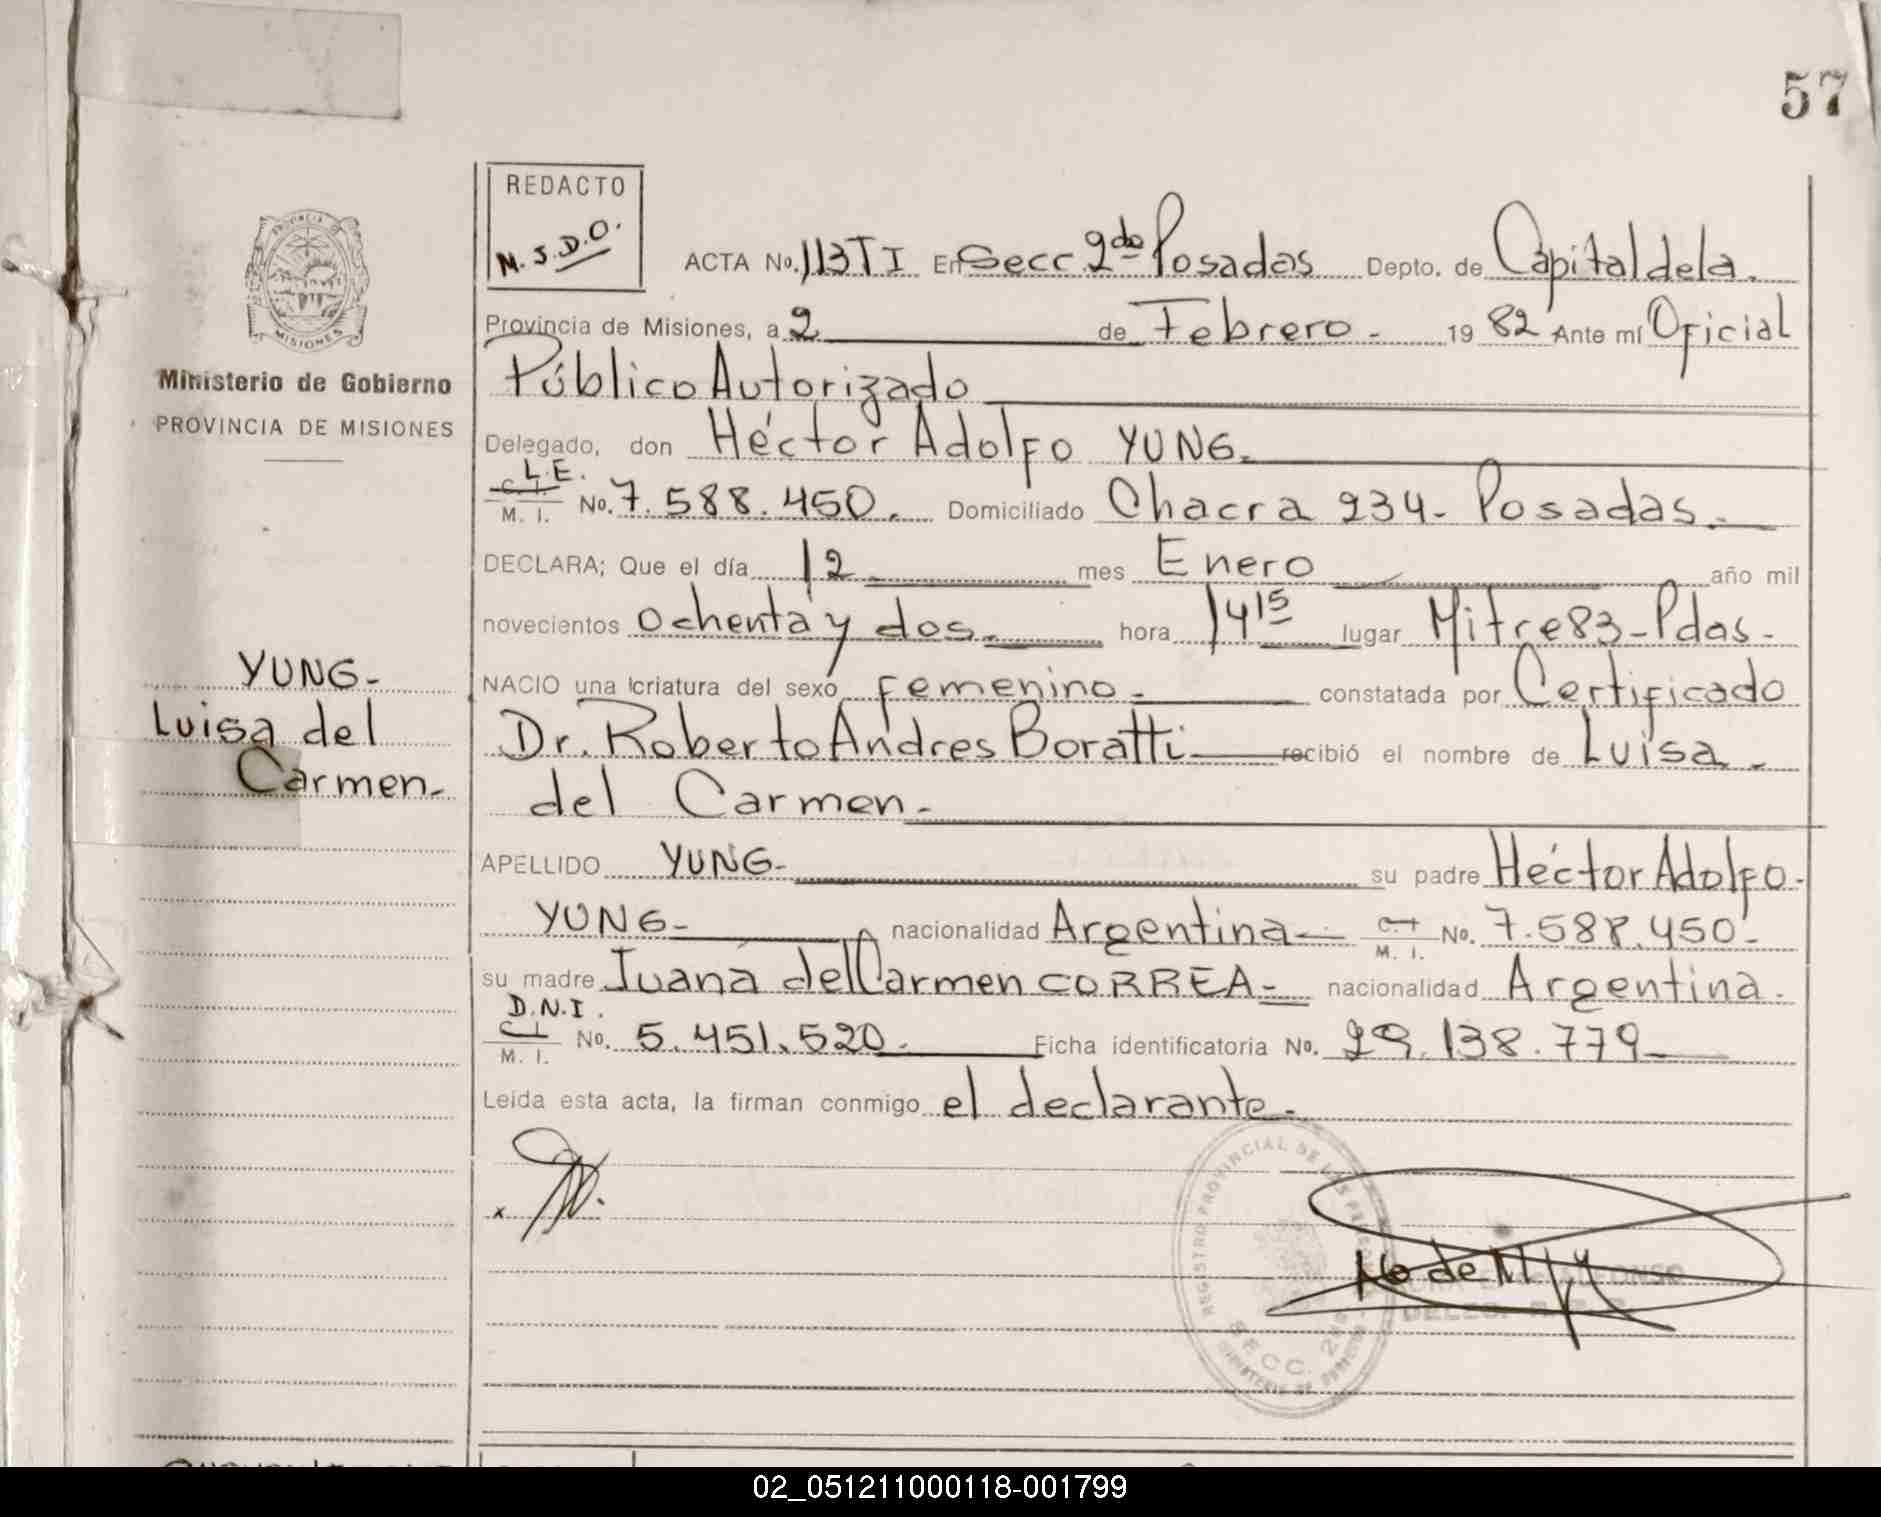 57
REDACTO
M. S. D. O.
ACTA No. 113 T I En Secc 2da Posadas Depto. de Capital de la.
Provincia de Misiones, a 2 de Febrero - 19 82 Ante mí Oficial
Público Autorizado
Delegado, don Héctor Adolfo YUNG.
L.E.
C. I.
M. I. No. 7.588.450. Domiciliado Chacra 234 - Posadas.
DECLARA; Que el día 12 mes Enero año mil
novecientos ochenta y dos. hora 14 15 lugar Mitre 83 - Pdas -
NACIO una criatura del sexo femenino - constatada por Certificado
Dr. Roberto Andres Boratti recibió el nombre de Luisa -
del Carmen -
APELLIDO YUNG - su padre Héctor Adolfo -
YUNG - nacionalidad Argentina - C. I. M. I. No. 7.588.450 -
su madre Juana del Carmen CORREA - nacionalidad Argentina.
D.N.I.
C. I.
M. I. No. 5.451.520 - Ficha identificatoria No. 29.138.779
Leída esta acta, la firman conmigo el declarante.
PROVINCIA
MISIONES
Ministerio de Gobierno
PROVINCIA DE MISIONES
YUNG -
Luisa del
Carmen -
REGISTRO PROVINCIAL DE LAS PERSONAS
SECC. 2da
02_051211000118-001799